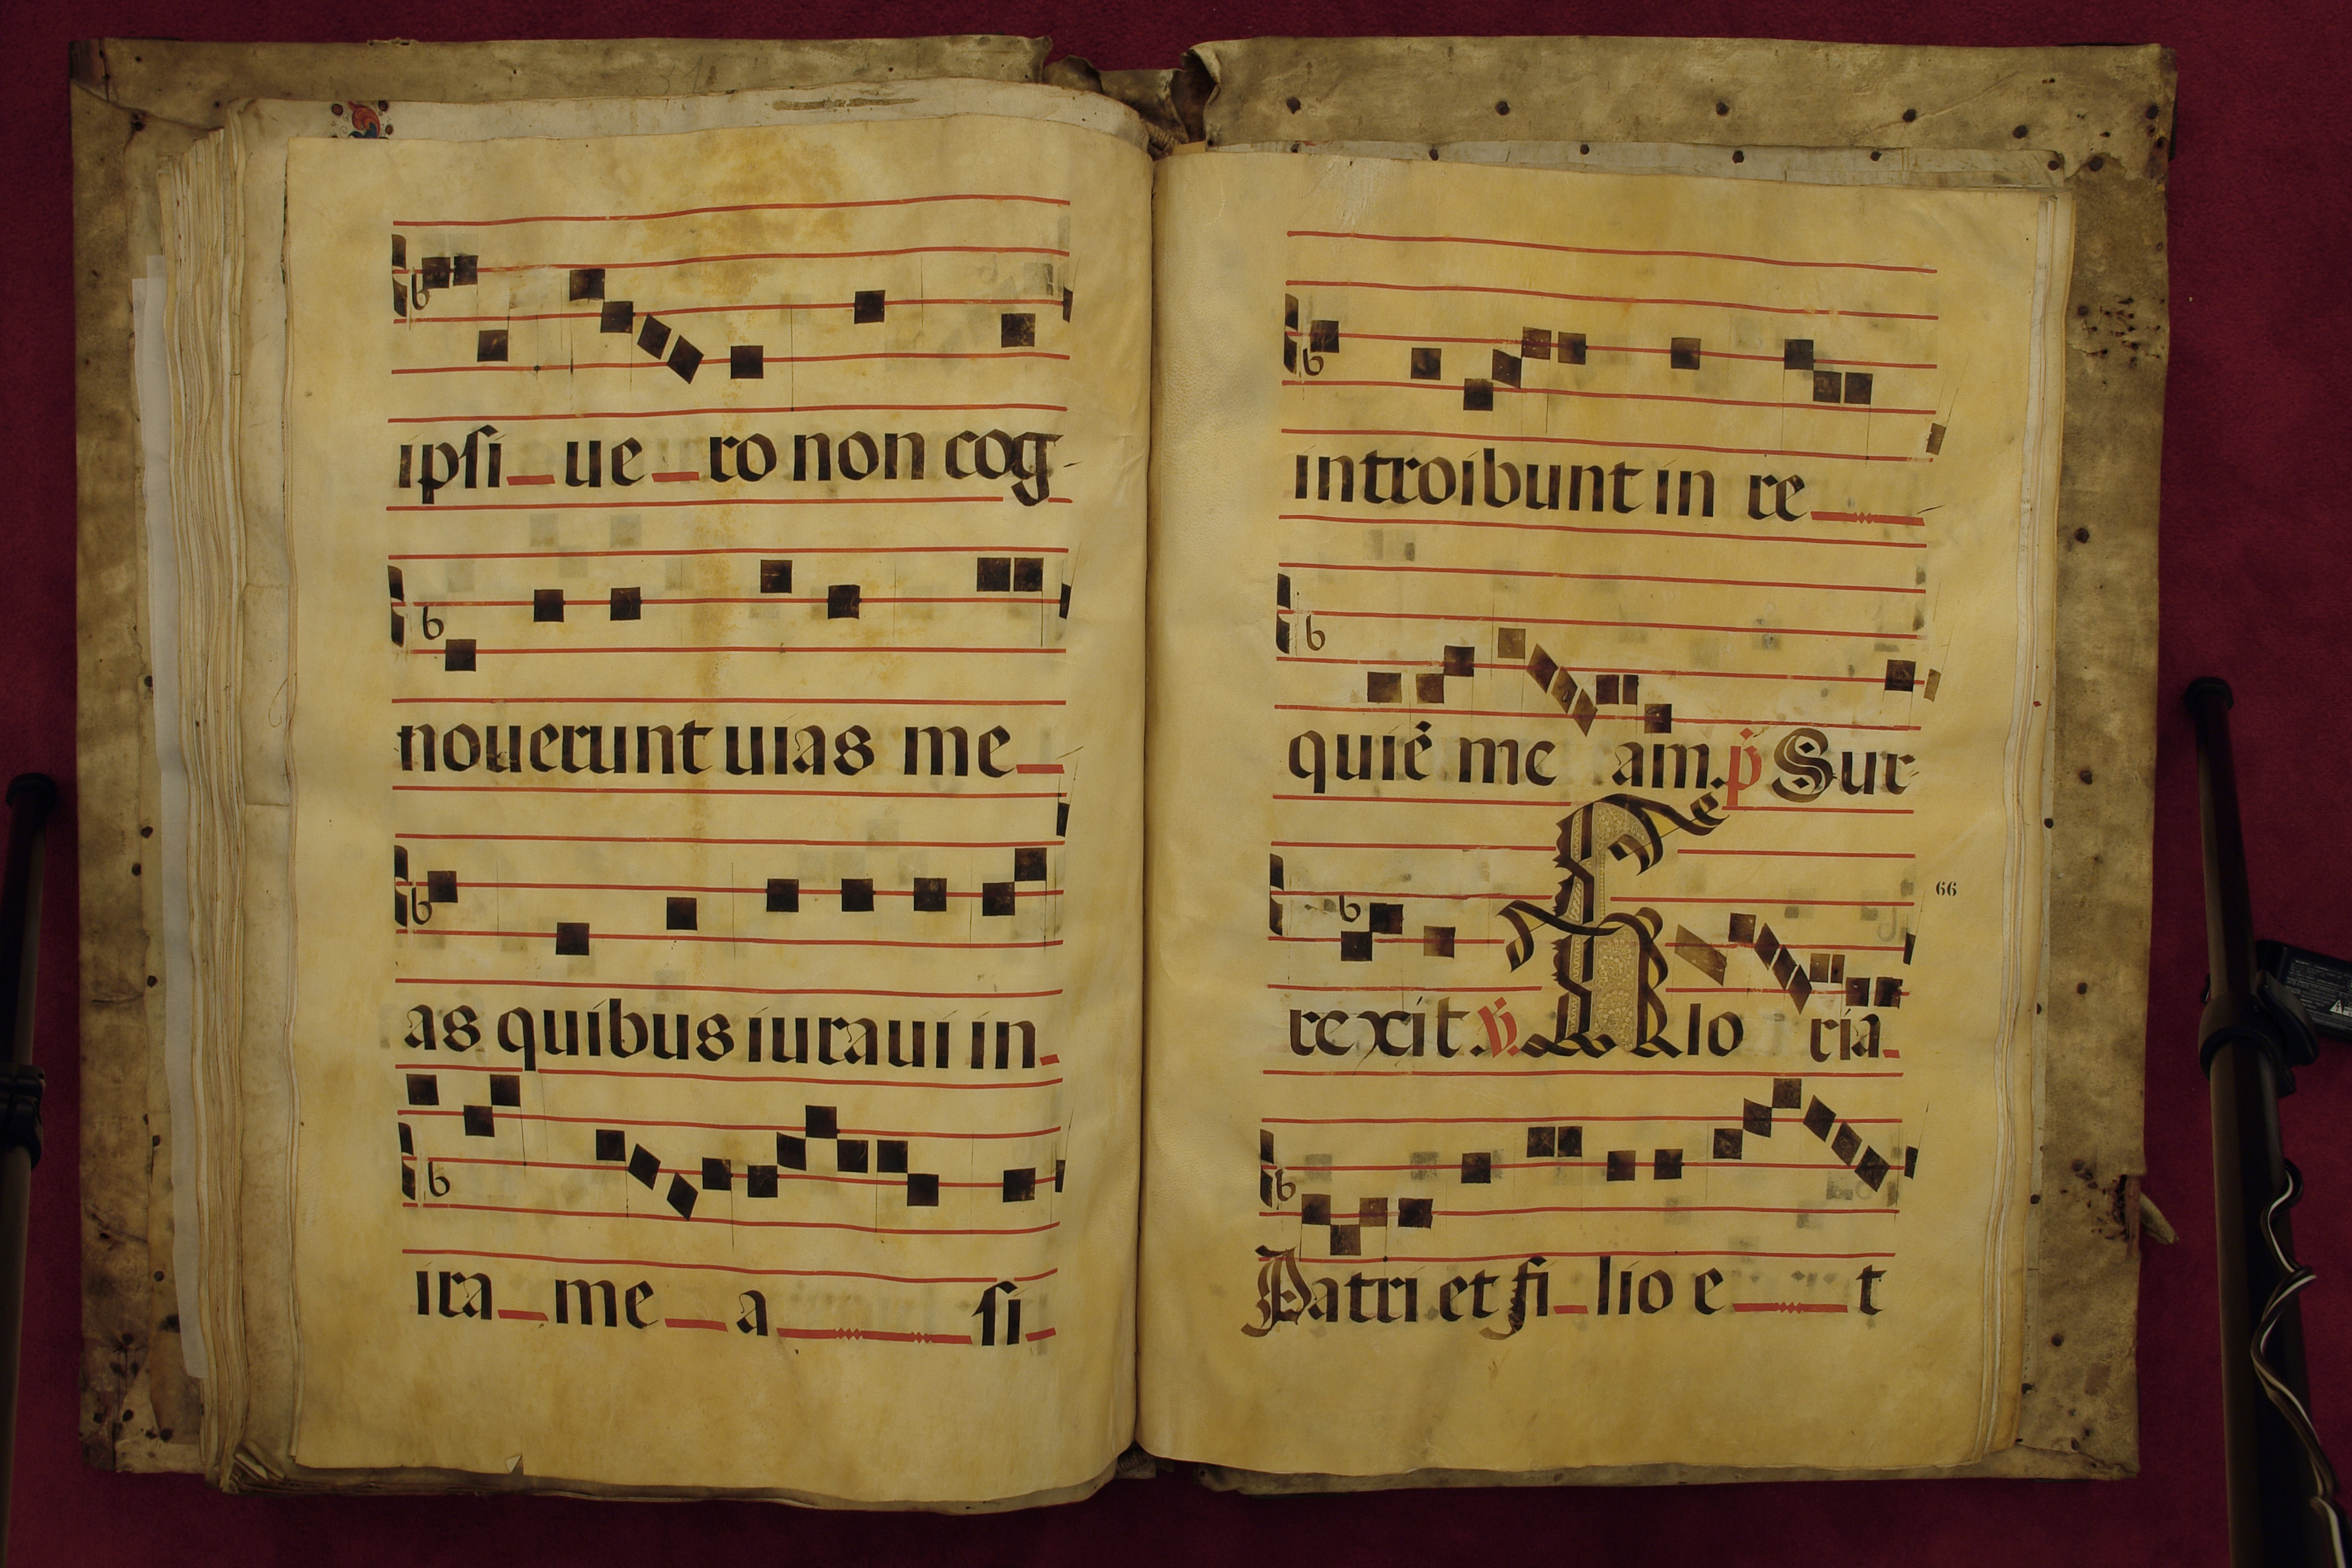 ipsi ue ro non cog-
nouerunt uias me
as quibus iuraui in
ira me a si
introibunt in re
quiē me am. p̄ Sur
rexit. ℣. Glo ria
66
Patri et fi lio e t